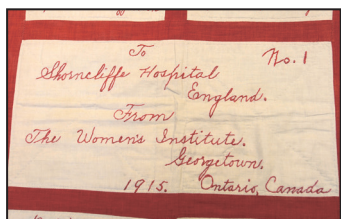 To
No. 1
Shorncliffe Hospital
England.
From
The Women's Institute.
Georgetown.
1915. Ontario, Canada